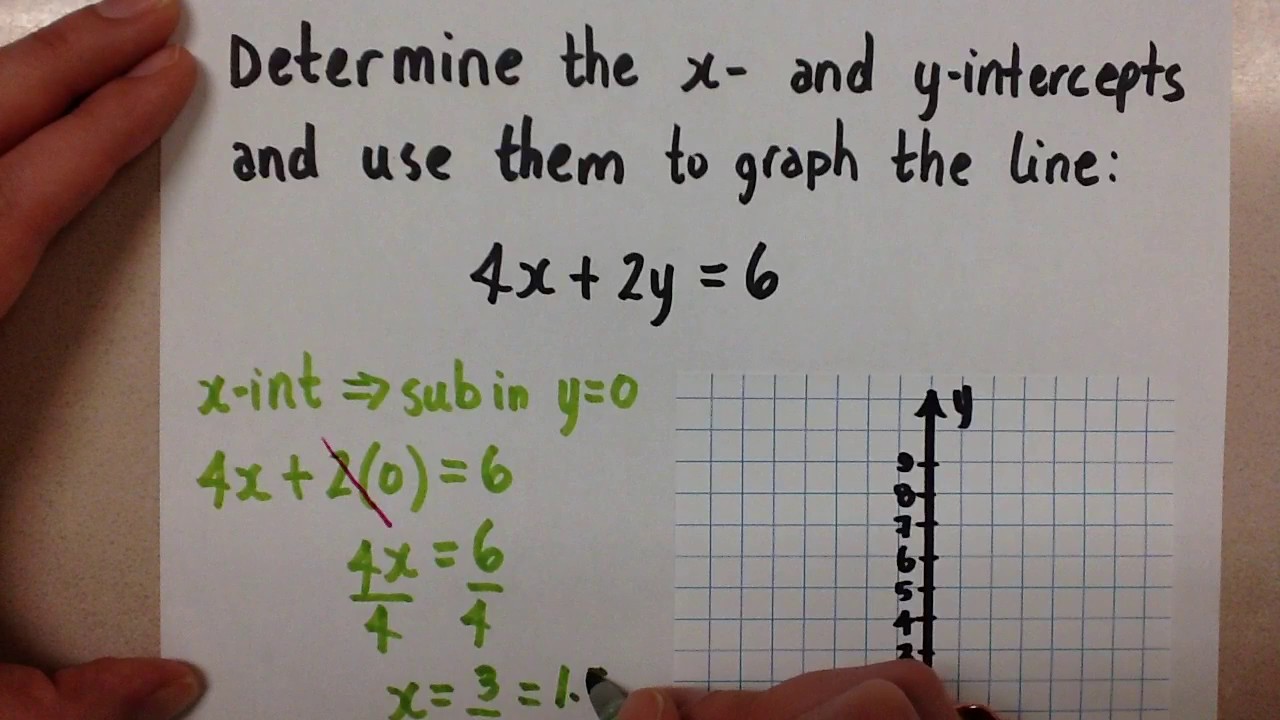 Determine the x- and y-intercepts
and use them to graph the line:
4x + 2y = 6
x-int ⇒ sub in y=0
4x + 2(0) = 6
4x = 6
4 4
x = 3 = 1.
y
9
8
7
6
5
4